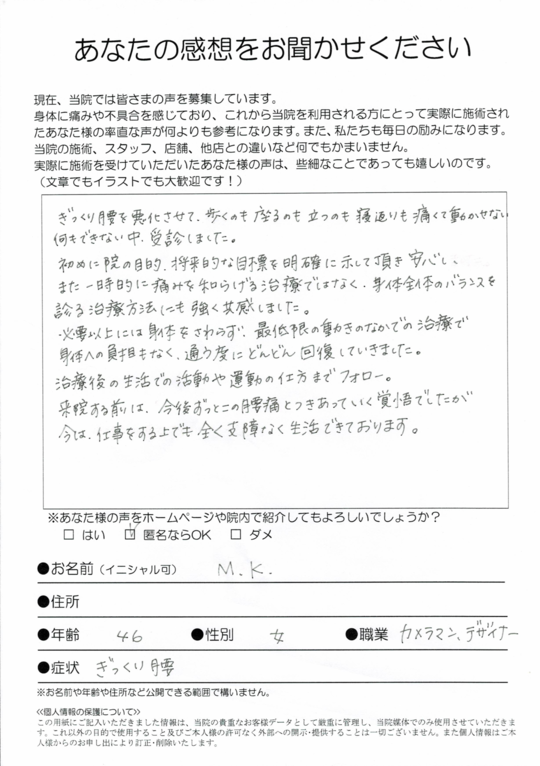 あなたの感想をお聞かせください
現在、当院では皆さまの声を募集しています。
身体に痛みや不具合を感じており、これから当院を利用される方にとって実際に施術され
たあなた様の率直な声が何よりも参考になります。また、私たちも毎日の励みになります。
当院の施術、スタッフ、店舗、他店との違いなど何でもかまいません。
実際に施術を受けていただいたあなた様の声は、些細なことであっても嬉しいのです。
(文章でもイラストでも大歓迎です!)
ぎっくり腰を悪化させて、歩くのも座るのも立つのも寝返りも痛くて動かせない
何もできない中、受診しました。
初めに院の目的、将来的な目標を明確に示して頂き安心し、
また一時的に痛みを和らげる治療ではなく、身体全体のバランスを
診る治療方法にも強く共感しました。
必要以上には身体をさわらず、最低限の動きのなかでの治療で
身体への負担もなく、通う度にどんどん回復していきました。
治療後の生活での活動や運動の仕方までフォロー。
来院する前は、今後ずっとこの腰痛とつきあっていく覚悟でしたが
今は、仕事をする上でも全く支障なく生活できております。
※あなた様の声をホームページや院内で紹介してもよろしいでしょうか?
□ はい ☑ 匿名ならOK □ ダメ
●お名前(イニシャル可) M.K.
●住所
●年齢 46 ●性別 女 ●職業 カメラマン、デザイナー
●症状 ぎっくり腰
※お名前や年齢や住所など公開できる範囲で構いません。
≪個人情報の保護について≫
この用紙にご記入いただきました情報は、当院の貴重なお客様データとして厳重に管理し、当院媒体でのみ使用させていただきま
す。これ以外の目的で使用すること及びご本人様の許可なく外部への開示・提供することは一切ございません。また個人情報はご本
人様からのお申し出により訂正・削除いたします。